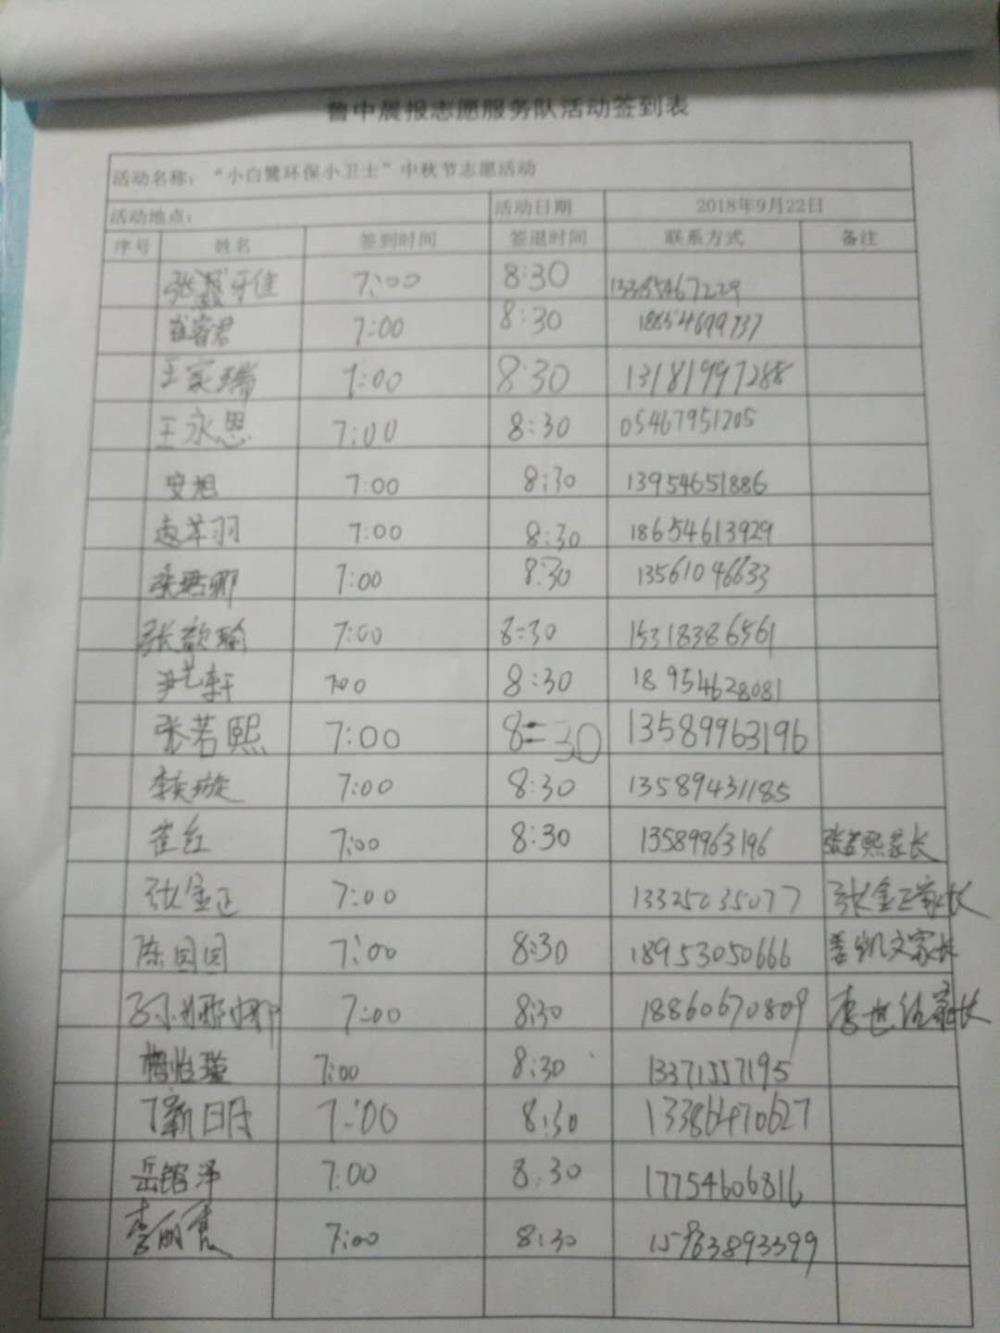 鲁中晨报志愿服务队活动签到表
活动名称：“小白鹭环保小卫士”中秋节志愿活动
活动地点： 活动日期 2018年9月22日
序号 姓名 签到时间 签退时间 联系方式 备注
7:00 8:30
7:00 8:30 18654699737
王家瑞 7:00 8:30 13181997288
王永恩 7:00 8:30 05467951205
安旭 7:00 8:30 13954651886
7:00 8:30 18654613929
7:00 8:30 13561046633
张歆瑜 7:00 8:30 15318386561
尹艺轩 7:00 8:30 18954628081
张若熙 7:00 8:30 13589963196
7:00 8:30 13589431185
崔红 7:00 8:30 13589963196 张若熙家长
张金正 7:00 13325035077 张金正家长
陈囡囡 7:00 8:30 18953050666 家长
7:00 8:30 18860670809 家长
7:00 8:30 13371557195
7:00 8:30 13386470627
7:00 8:30 17754606816
7:00 8:30